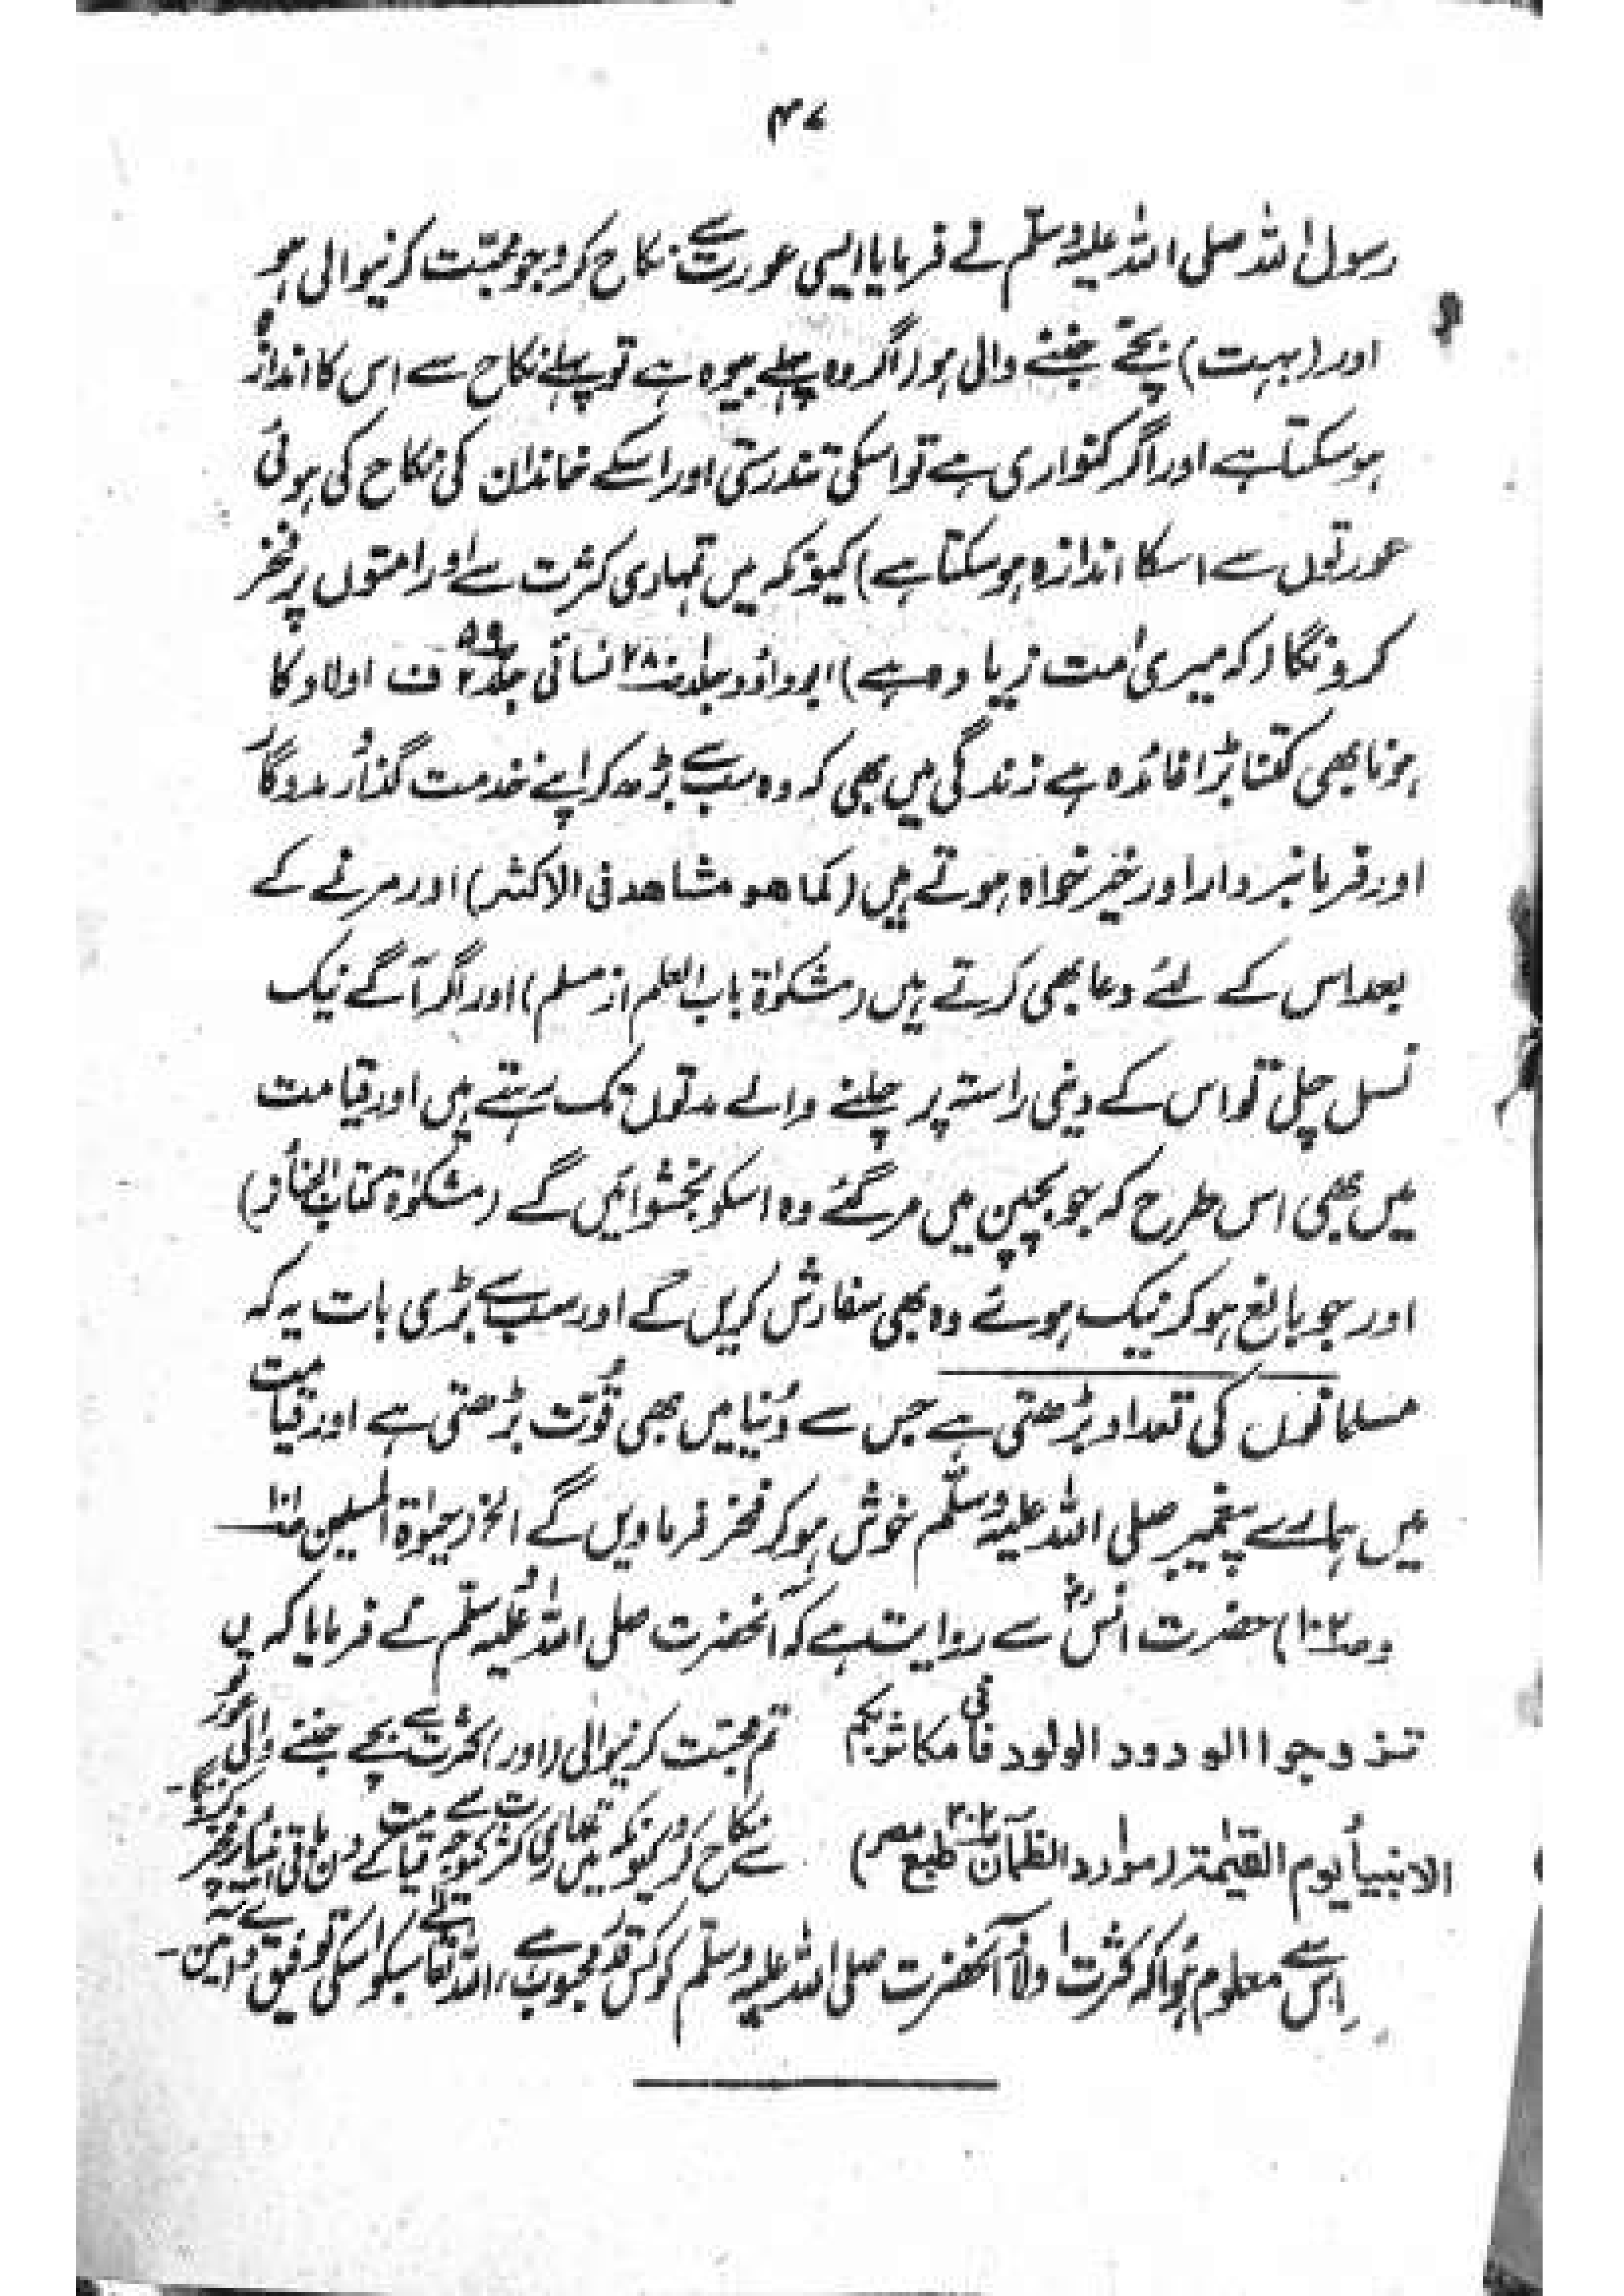 ۴۷
رسول اللہ صلی اللہ علیہ وسلم نے فرمایا ایسی عورت سے نکاح کرو جو محبّت کرنیوالی ہو
اور (بہت) بچّے جننے والی ہو (اگر وہ پہلے بیوہ ہے تو پہلے نکاح سے اس کا اندازہ
ہوسکتا ہے اور اگر کنواری ہے تو اسکی تندرستی اور اسکے خاندان کی نکاح کی ہوئی
عورتوں سے اسکا اندازہ ہوسکتا ہے) کیونکہ میں تمہاری کثرت سے اور امتوں پر فخر
کرونگا (کہ میری اُمت زیادہ ہے) ابوداؤد جلد نسائی جلد ۲ ف اولاد کا
ہونا بھی کتنا بڑا فائدہ ہے زندگی میں بھی کہ وہ سب سے بڑھ کر اپنے خدمت گذار مددگار
اور فرمانبردار اور خیر خواہ ہوتے ہیں (کما هو مشاهد فی الاکثر) اور مرنے کے
بعد اس کے لئے دعا بھی کرتے ہیں (مشکوٰۃ باب العلم از مسلم) اور اگر آگے نیک
نسل چلی تو اس کے دینی راستہ پر چلنے والے مدتوں تک رہتے ہیں اور قیامت
میں بھی اس طرح کہ جو بچپن میں مر گئے وہ اسکو بخشوائیں گے (مشکوٰۃ کتاب الجنائز)
اور جو بالغ ہوکر نیک ہوئے وہ بھی سفارش کریں گے اور سب سے بڑی بات یہ کہ
مسلمانوں کی تعداد بڑھتی ہے جس سے دُنیا میں بھی قُوّت بڑھتی ہے اور قیامت
میں ہمارے پیغمبر صلی اللہ علیہ وسلّم خوش ہوکر فخر فرماویں گے الخ (حیوٰۃ المسلمین
حضرت انسؓ سے روایت ہے کہ آنحضرت صلی اللہ علیہ وسلّم نے فرمایا کہ
تزوجوا الودود الولود فانی مکاثر بکم تم محبّت کرنیوالی (اور) کثرت سے بچے جننے والی عورتوں
الانبیاء یوم القیٰمۃ (موارد الظمآن ۳۰۲ طبع مصر) سے نکاح کرو کیونکہ میں تمھاری کثرت کیوجہ سے قیامت کے دن باقی انبیاء پر فخر
اس سے معلوم ہُوا کہ کثرت اولاد آنحضرت صلی اللہ علیہ وسلّم کو کس قدر محبوب ہے، اللہ تعالٰے سبکو اسکی توفیق دے۔ آمین۔